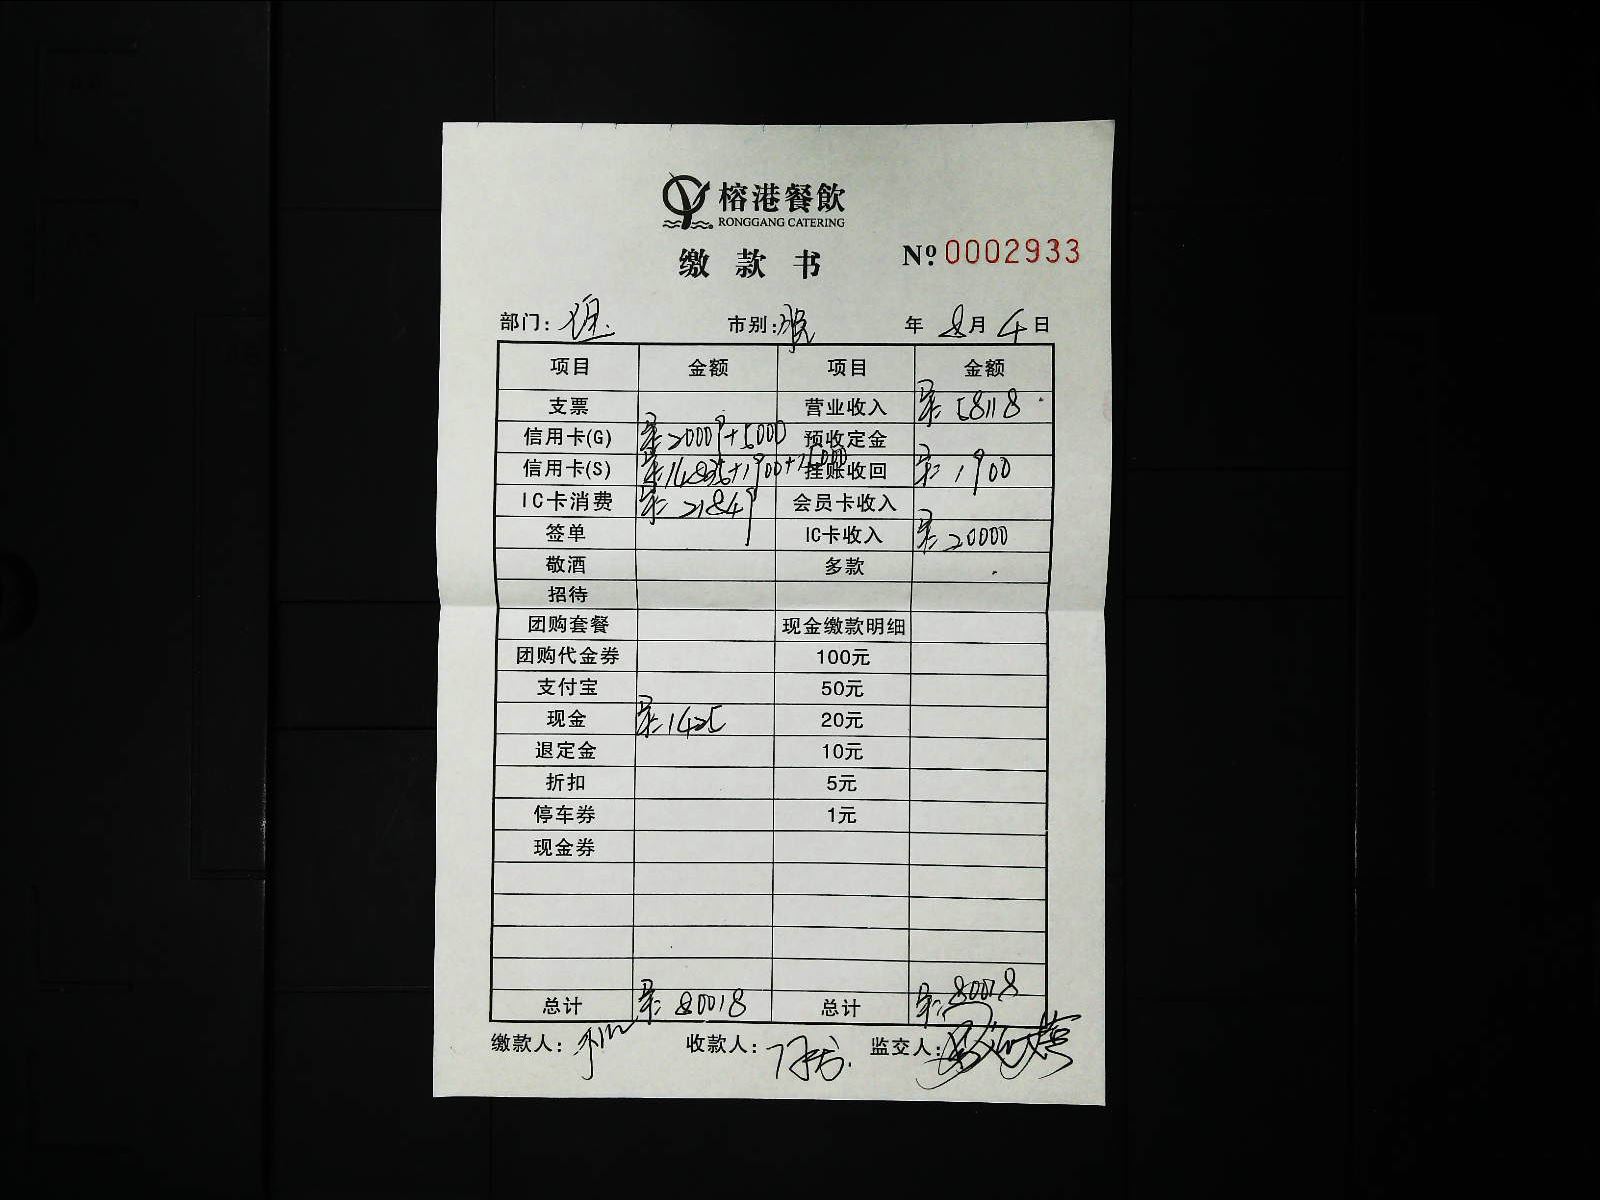 榕港餐飲
RONGGANG CATERING
缴款书 Nº 0002933
部门: 市别: 晚 年 8月 4日
项目 金额 项目 金额
支票 营业收入 58118
信用卡(G) 20009+5000 预收定金
信用卡(S) 14835+1900+15000 挂账收回 1900
IC卡消费 21849 会员卡收入
签单 IC卡收入 20000
敬酒 多款
招待
团购套餐 现金缴款明细
团购代金券 100元
支付宝 50元
现金 1425 20元
退定金 10元
折扣 5元
停车券 1元
现金券
总计 80018 总计 80018
缴款人: 收款人: 监交人: